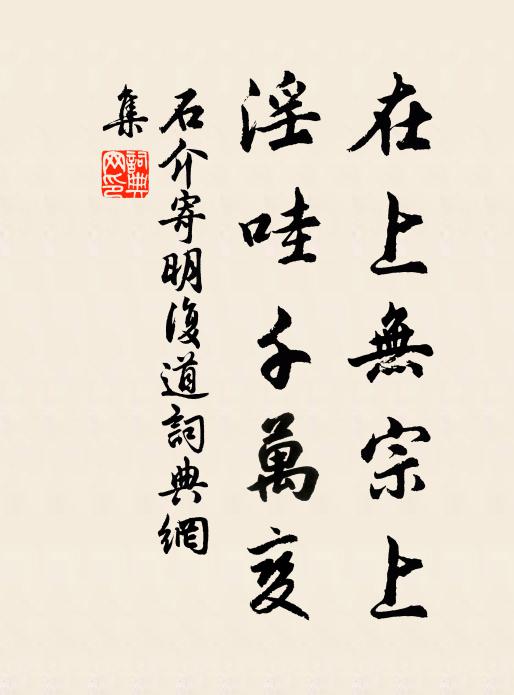 在上無宗上
淫哇千萬变
石介寄明復道詞典網
集
詞典网印